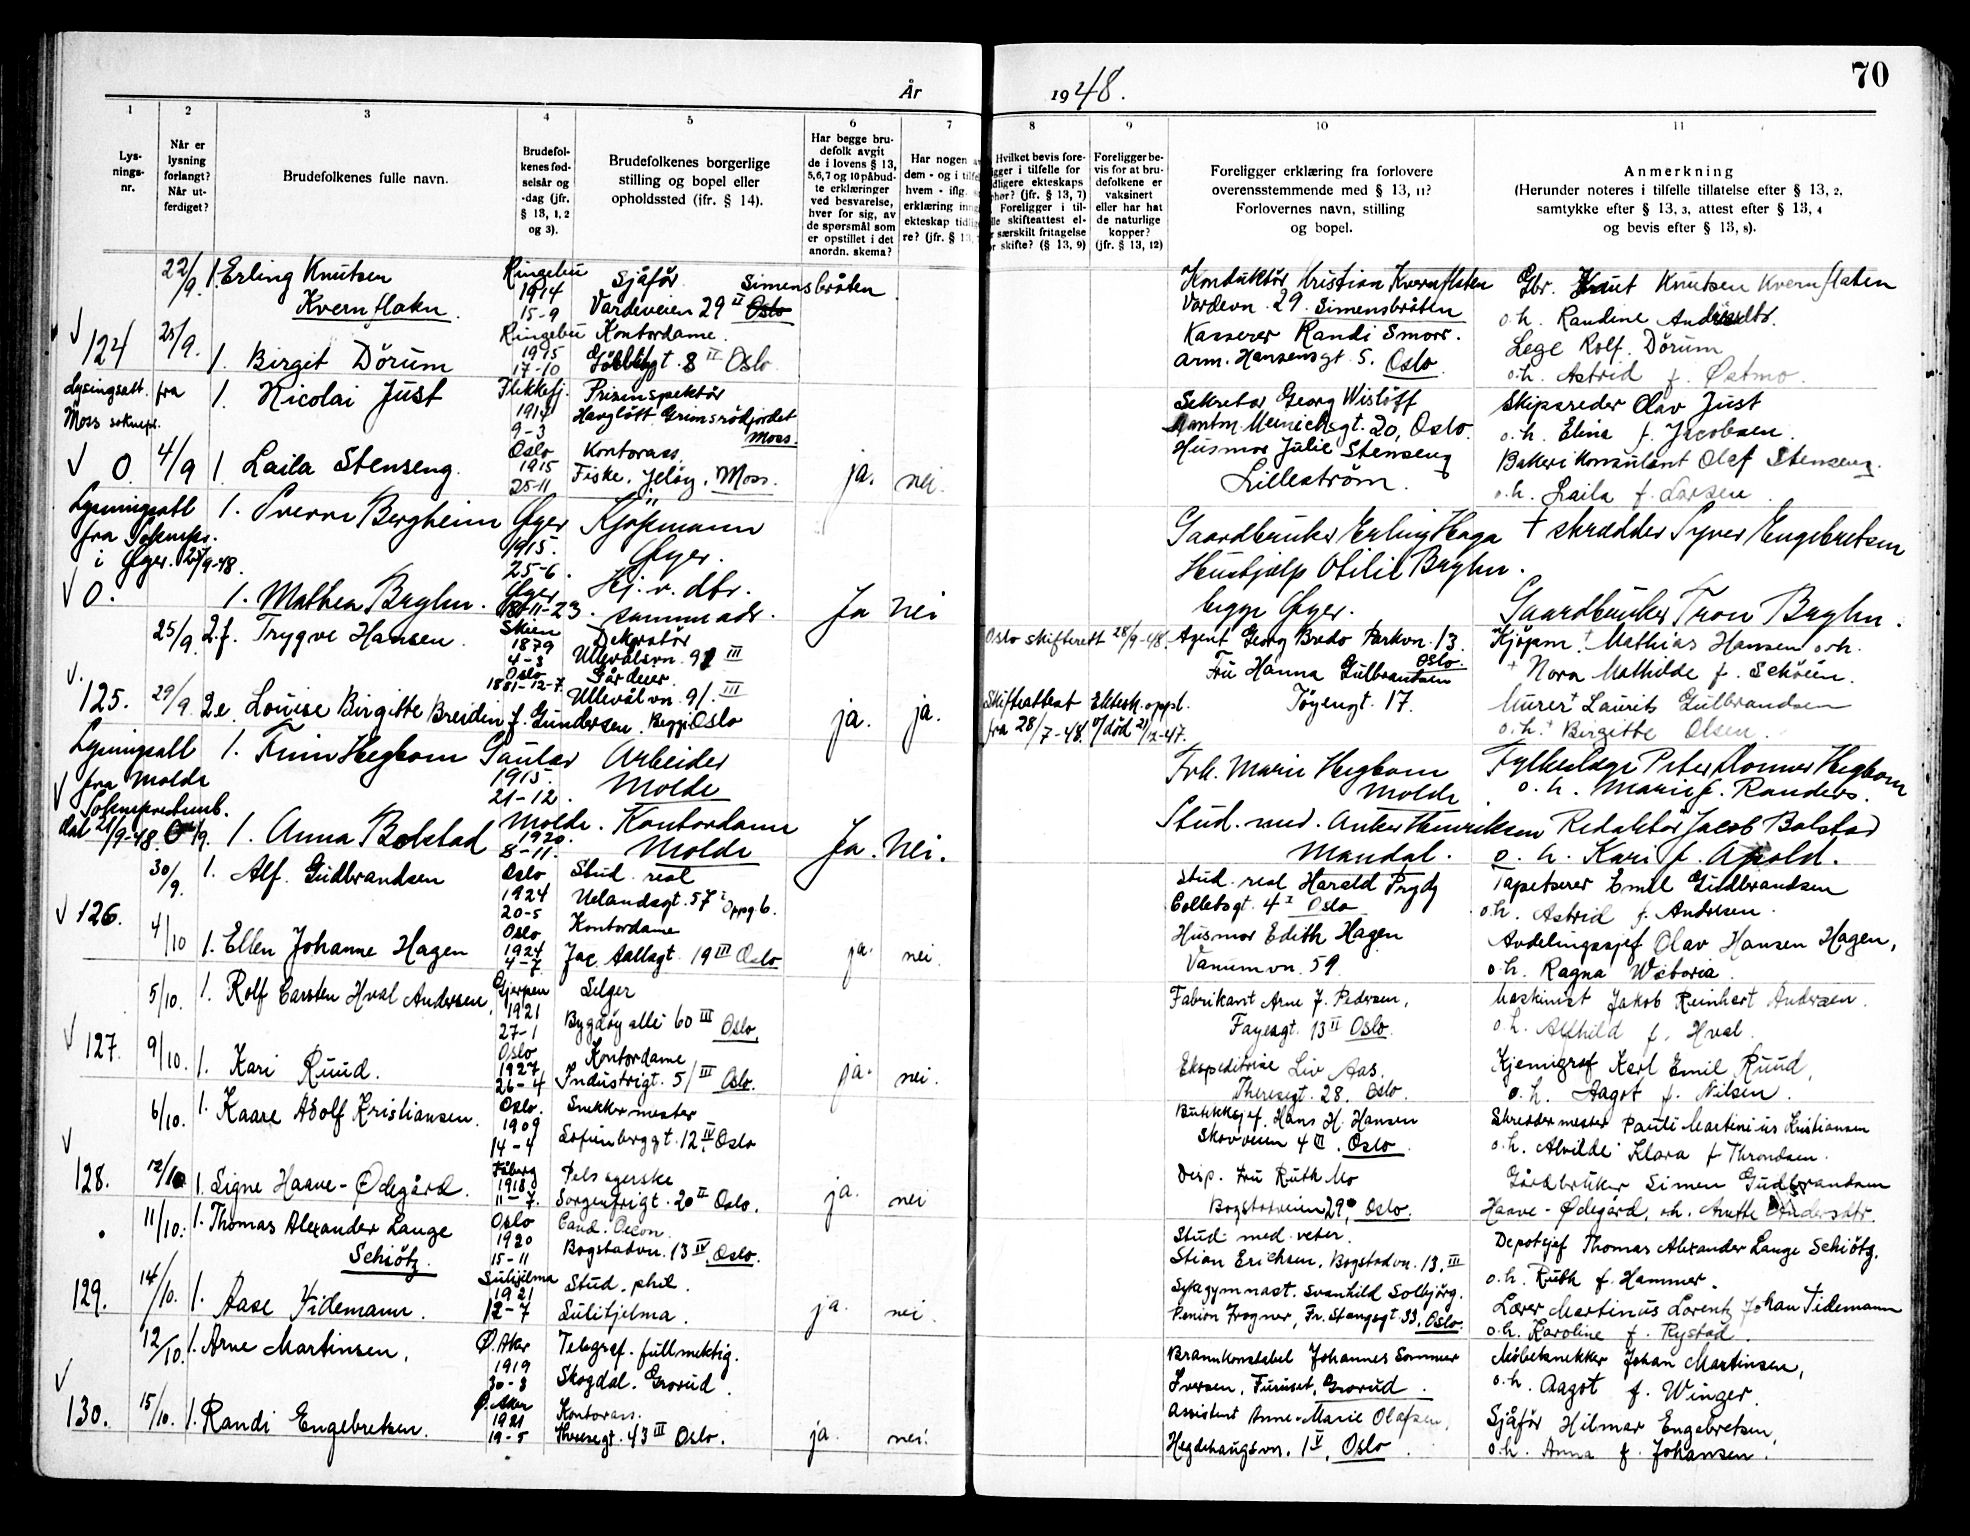 År 1948.
70
1 2 3 4 5 6 7 8 9 10 11
Lys-
nings-
nr.
Når er
lysning
forlangt?
Når ut-
ferdiget?
Brudefolkenes fulle navn.
Brudefol-
kenes fød-
selsår og
-dag (jfr.
§ 13, 1, 2
og 3).
Brudefolkenes borgerlige
stilling og bopel eller
opholdssted (jfr. § 14).
Har begge bru-
defolk avgit
de i lovens § 13,
5,6,7 og 10 påbud-
te erklæringer
ved besvarelse,
hver for sig, av
de spørsmål som
er opstillet i det
anordn. skema?
Har nogen
dem - og i
hvem - iflg.
erklæring
ekteskap
re? (jfr. § 13,
Hvilket bevis fore-
ligger i tilfelle for
tidligere ekteskaps
ophør? (jfr. § 13, 7)
Foreligger i til-
skifteattest el-
særskilt fritagelse
skifte? (§ 13, 9)
Foreligger be-
vis for at bru-
defolkene er
vaksinert
eller har hat
de naturlige
kopper?
(jfr. § 13, 12)
Foreligger erklæring fra forlovere
overensstemmende med § 13, 11?
Forlovernes navn, stilling
og bopel.
Anmerkning
(Herunder noteres i tilfelle tillatelse efter § 13, 2.
samtykke efter § 13, 3, attest efter § 13, 4
og bevis efter § 13, 8).
22/9. 1. Erling Knutsen Kvernflaten Ringebu 1914 15-9 Sjåfør Simensbråten Vardeveien 29 II Oslo
Konduktør Kristian Kvernflaten Vardevn. 29. Simensbråten
Gbr. Knut Knutsen Kvernflaten o.h. Randine Andersdtr.
124 25/9. 1. Birgit Dörum Ringebu 1915 17-10 Kontordame. 8 II Oslo
Kasserer Randi Smors. Arm. Hansensgt. 5. Oslo
Lege Rolf Dörum o.h. Astrid f. Östmo.
Lysingsatt. fra Moss 1. Nicolai Just Flekkefj. 1914 9-3 Prisinspektör Havglött Grimsrödjordet Moss
Sekretær Georg Wislöff Meinichsgt. 20, Oslo
Skipsreder Olav Just o.h. Elina f. Jacobsen
0 4/9 1. Laila Stenseng. Oslo 1915 25-11 Kontorass. Fiske, Jelöy, Moss. ja. nei.
Husmor Julie Stenseng Lilleström.
Bakerikonsulent Olaf Stenseng. o.h. Laila f. Larsen
Lysningsatt fra Soknepr. i Öyer. 25/9-48. 1. Sverre Bergheim Öyer 1915. 25-6. Kjöpmann Öyer.
Gaardbruker Erling Haga
† skrædder Syver Engebretsen
0. 1. Mathea Bryhn. Öyer 11-23. Hj. v. dtr. samme adr. Ja Nei
Hushjelp Otilie Bryhn. begge Öyer.
Gaardbruker Tron Bryhn.
25/9 2.f. Trygve Hansen. Skien 1879 4-3 Dekoratör Ullevålsvn. 91 III
Oslo skifterett 28/9-48. Agent Georg Bredo Parkvn. 13. Oslo.
Kjöpm. † Mathias Hansen o.h. † Nora Mathilde f. Schöien.
125. 29/9 2 e. Louise Birgitte Breiden f. Gundersen. Oslo 1881-12-7 Gårdeier. Ullevålvn 91. III Begge Oslo ja. ja.
Skifteattest fra 28/7-48. Ektesk. oppl. v/död 21/12-47. Fru Hanna Gulbrantsen Töyengt. 17.
Murer † Laurits Gulbrandsen o.h. † Birgitte Olsen.
Lysningsatt fra Molde 21/9-48. 1. Finn Hegbom Gaular 1915. 21-12. Arbeider Molde
Frk. Marie Hegbom Molde.
Fylkeslege Peter Hegbom o.h. Marie f. Randers.
1. Anna Bolstad Molde. 1920. 8-11. Kontordame Molde Ja. Nei.
Stud. med. Anker Henriksen Mandal.
Redaktör Jacob Bolstad o. h. Kari f. Apold.
30/9. 1. Alf Gudbrandsen Oslo 1924 20-5 Stud. real Uelandsgt. 57 I Oppg b.
Stud. real Harald Prydz Colletsgt. 4 I Oslo
Tapetserer Emil Gudbrandsen o.h. Astrid f. Andresen.
126. 4/10 1. Ellen Johanne Hagen Oslo 1924 4-7 Kontordame Jac. Aallsgt. 19 III Oslo ja. nei.
Husmor Edith Hagen Vanumvn. 59.
Avdelingssjef Olav Hansen Hagen, o.h. Ragna Wiboria.
5/10. 1. Rolf Carsten Hval Andersen, Gjerpen 1921 27-1 Selger Bygdöy allé 60 III Oslo.
Fabrikant Arne J. Pedersen, Fayesgt. 13 II Oslo.
Maskinist Jakob Reinhart Andersen. o.h. Alfhild f. Hval.
127. 9/10. 1. Kari Ruud. Oslo 1927 26-4 Kontordame Industrigt. 51 III Oslo. ja. nei.
Ekspeditrise Liv Aas. Theresegt. 28. Oslo.
Kjemigraf Karl Emil Ruud, o.h. Aagot f. Nilsen.
6/10. 1. Kaare Adolf Kristiansen. Oslo. 1909 14-4 Snekkermester Sofienberggt. 12. IV Oslo
Butikksjef. Hans H. Hansen Skovveien 4 II. Oslo.
Skreddermester Pauli Martinius Kristiansen o.h. Alvilde Klara f Throndsen.
128. 12/10 1. Signe Haave-Ödegård. Fåberg 1918 11-7. Pelssyerske Sorgenfrigt. 20 II Oslo. ja. nei
Disp. Fru Ruth Mo Bogstadveien 29, Oslo.
Gårdbruker Simen Gudbrandsen Haave-Ödegård, o.h. Anette Andersdtr.
11/10. 1. Thomas Alexander Lange Schiötz. Oslo 1920 15-11 Cand. Oecon. Bogstadvn. 13 IV. Oslo.
Stud med veter. Stian Erichsen, Bogstadvn. 13. III
Depotsjef Thomas Alexander Lange Schiötz. o.h. Ruth f. Hammer.
129. 14/10. 1. Aase Tidemann. Sulitjelma 1921 12-7 Stud. phil. Sulitjelma. ja. nei.
Sykegymnast. Svanhild Solbjörg. Pension Frogner, Fr. Stangsgt. 33, Oslo.
Lærer Martinus Lorentz Johan Tidemann o.h. Karoline f. Rystad.
12/10. 1. Arne Martinsen, Ö. Aker 1919 30-3 Telegraf. fullmektig. Skogdal. Grorud.
Brannkonstabel Johannes Sommer Iversen, Furuset, Grorud.
Möbelsnekker Johan Martinsen, o.h. Aagot f. Winger.
130. 15/10. 1. Randi Engebretsen. Ö. Aker 1921 19-5 Kontorass. Theresegt. 43 III Oslo. ja. nei.
Assistent Anne-Marie Olafsen, Hegdehaugsvn. 1 V, Oslo.
Sjåför Hilmar Engebretsen, o.h. Anna f. Johansen.